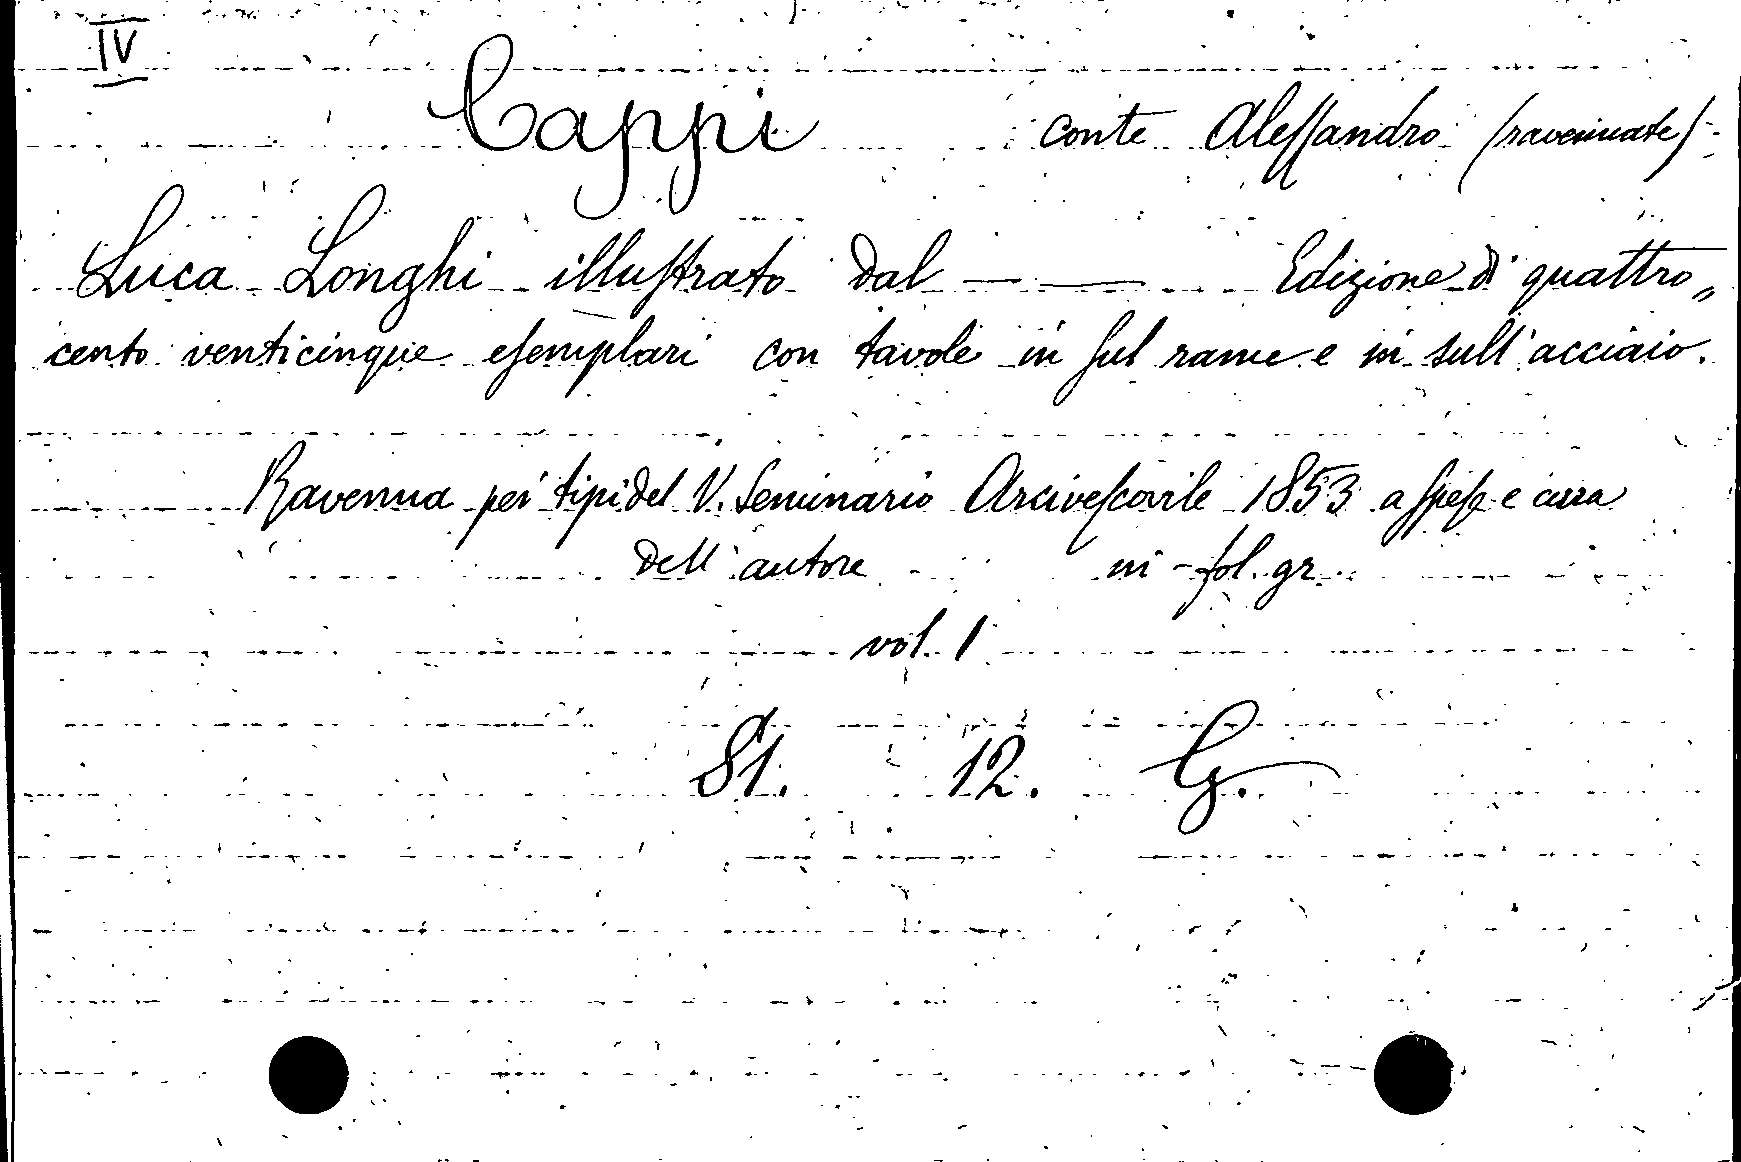 IV
Cappi conte Alessandro (ravennate)
Luca Longhi illustrato dal — — Edizione di quattro„
cento venticinque esemplari con tavole in sul rame e in sull'acciaio.
Ravenna pei tipi del V. Seminario Arcivescovile 1853 a spese e cura
dell'autore in-fol. gr.
vol. 1
St. 12. G.